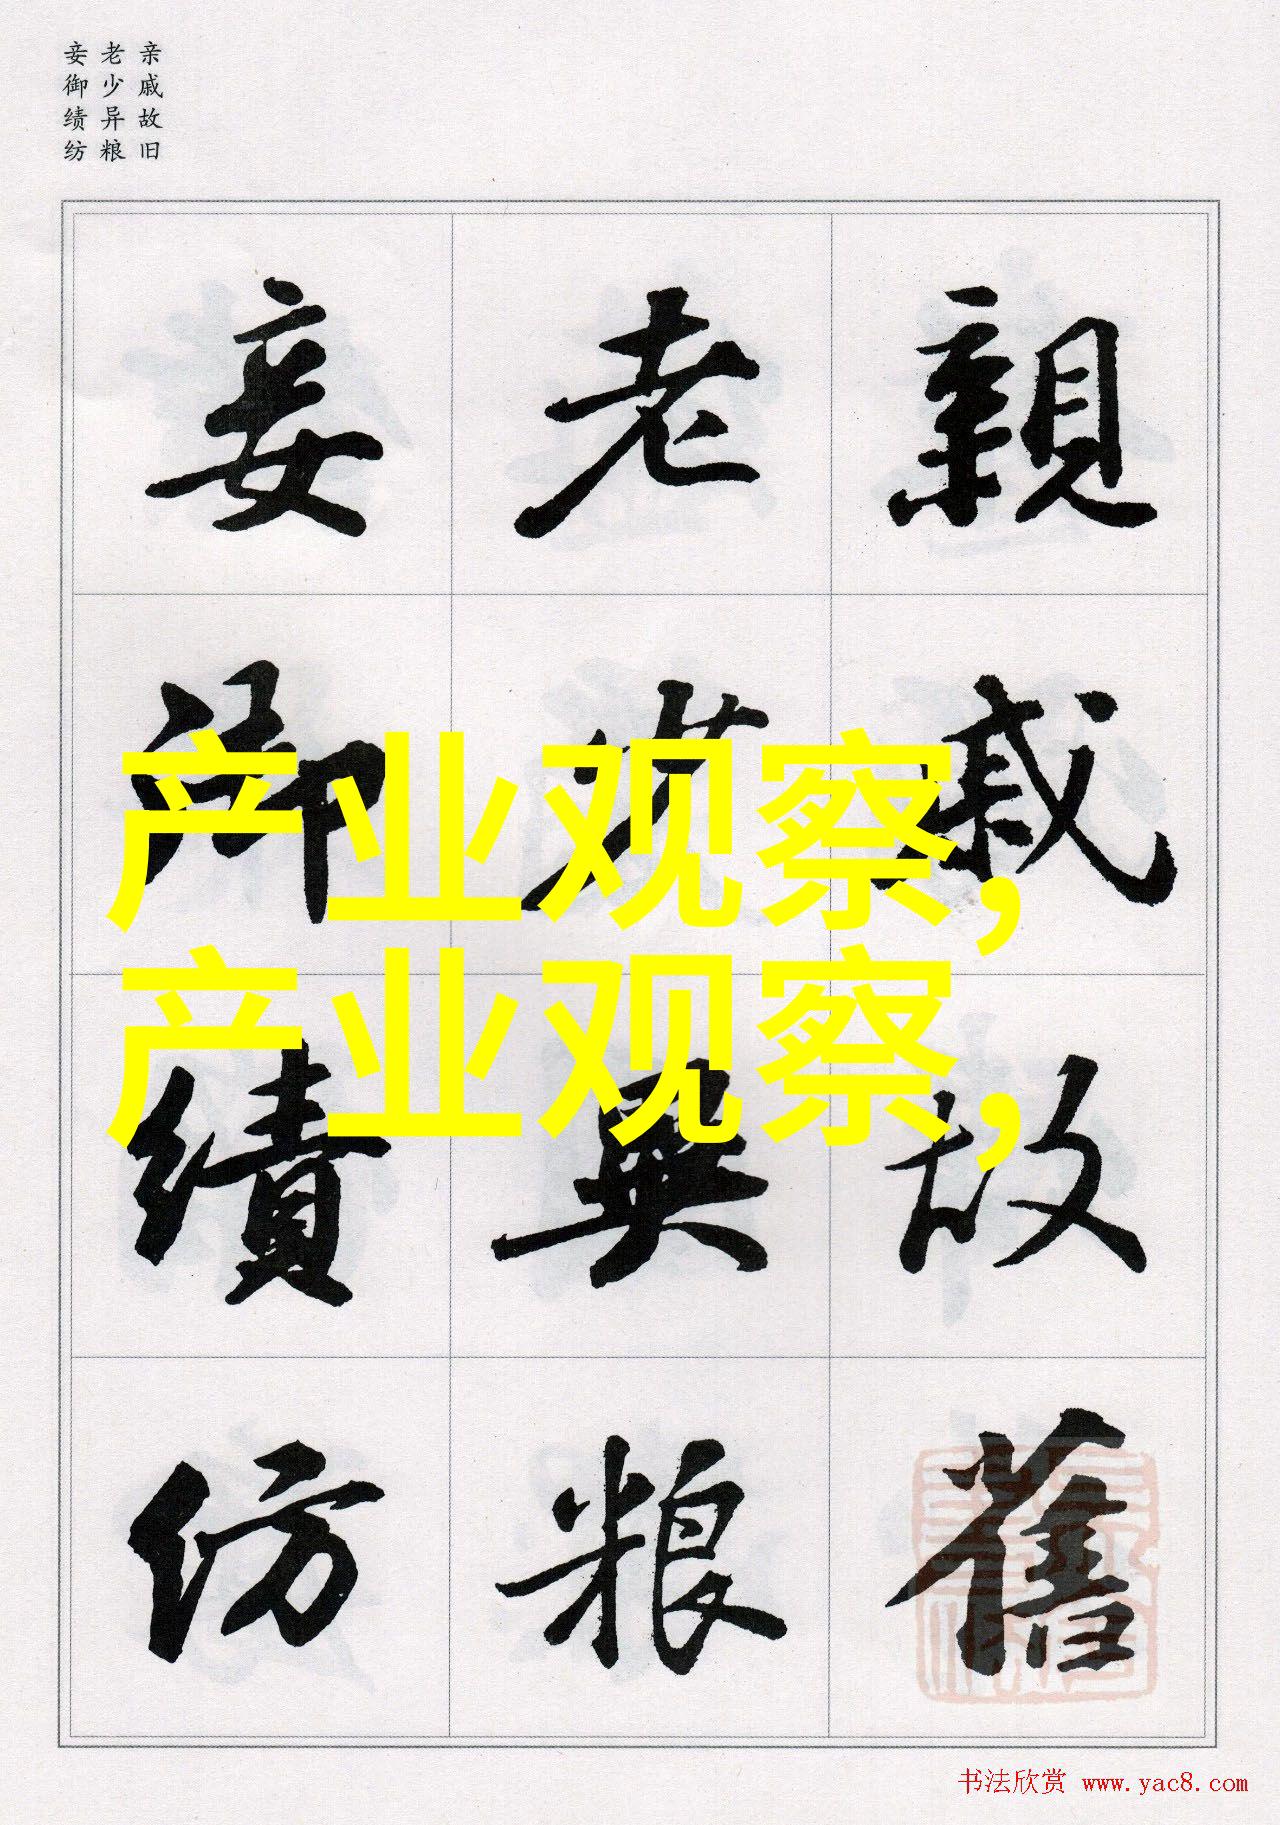 亲戚故旧
老少异粮
妾御绩纺
親戚故舊
老少異粮
妾御績紡
产业观察,
产业观察,
书法欣赏 www.yac8.com